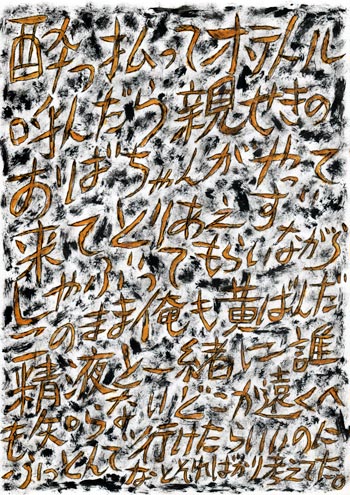 酔っ払ってホテトル
呼んだら親せきの
おばちゃんがやって
来てとりあえず
しゃぶってもらいながら
このまま俺も黄ばんだ
精液と一緒に誰
も知らないどこか遠くへ
ぶっとんで行けたらいいのに
なとそればかり考えてた。